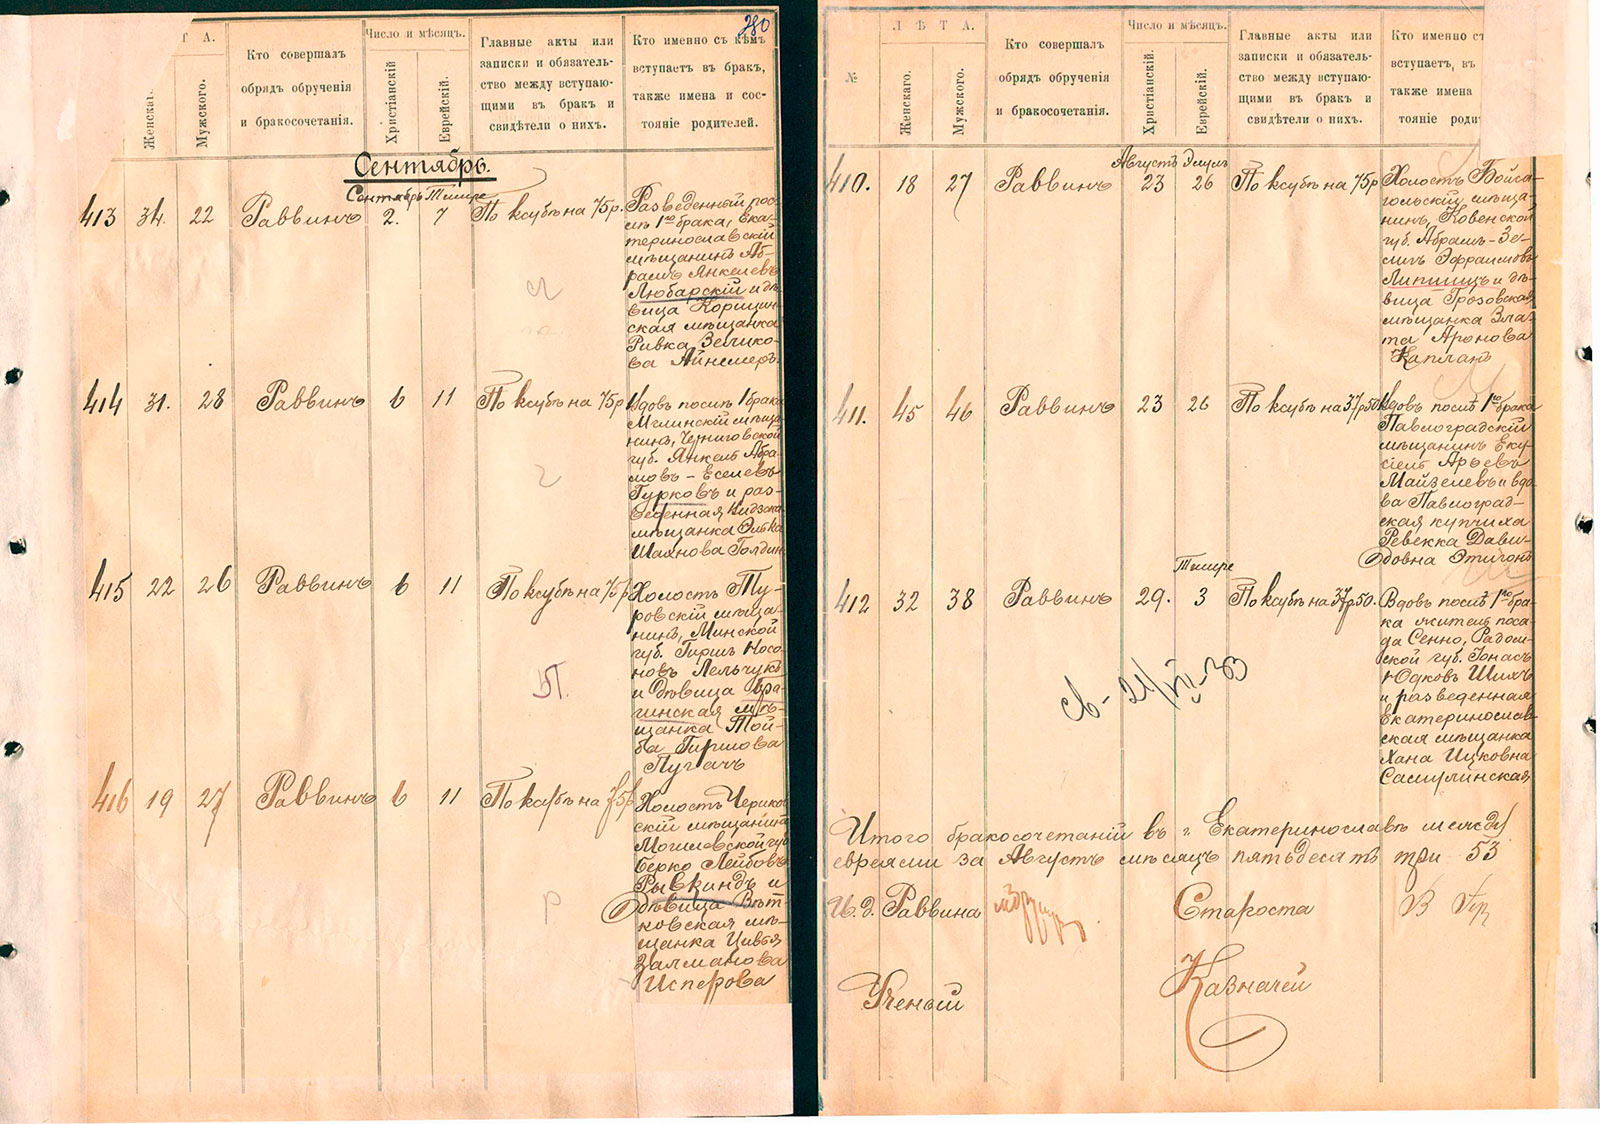 280
Т А.
Женскаг
Мужского.
Кто совершалъ
обрядъ обрученія
и бракосочетанія.
Число и мѣсяцъ.
Христіанскій
Еврейскій.
Главные акты или
записки и обязатель-
ство между вступаю-
щими въ бракъ и
свидѣтели о нихъ.
Кто именно съ кѣмъ
вступаетъ въ бракъ,
также имена и сос-
тояніе родителей.
Сентябрь.
Сентябрь Тишре
413 34. 22 Раввинъ 2. 7 По ксубѣ на 75р.
Разведенный пос-
лѣ 1го брака, Ека-
теринославскій
мѣщанинъ Аб-
рамъ Янкелевъ
Любарскій и дѣ-
вица Корицин-
ская мѣщанка
Ривка Зелико-
ва Айнемеръ.
414 31. 28 Раввинъ 6 11 По ксубѣ на 75р
Вдовъ послѣ 1 брака
Мглинскій мѣща
нинъ, Черниговской
губ. Янкель Абра
мовъ-Еселевъ
Гурковъ и раз-
веденная Видзская
мѣщанка Элька
Шахнова Голдин
415 22 26 Раввинъ 6 11 По ксубѣ на 75р
Холостъ Ту-
ровскій мѣща
нинъ, Минской
губ. Гиршъ Носо-
новъ Лельчукъ
и дѣвица Бра-
гинская мѣ-
щанка Той-
ба Гиршова
Пугачъ
П.
416 19 27 Раввинъ 6 11 По ксубѣ на 75р
Холостъ Чериков
скій мѣщанинъ
Могилевской губ
Берко Лейбовъ
Рывкиндъ и
дѣвица Вѣт-
ковская мѣ-
щанка Цивья
Залманова
Исперова
Р
№
Л Ѣ Т А.
Женскаго.
Мужского.
Кто совершалъ
обрядъ обрученія
и бракосочетанія.
Число и мѣсяцъ.
Христіанскій.
Еврейскій.
Главные акты или
записки и обязатель-
ство между вступаю-
щими въ бракъ и
свидѣтели о нихъ.
Кто именно съ
вступаетъ, въ
также имена
тояніе роди
Августъ Элулъ
410. 18 27 Раввинъ 23 26 По ксубѣ на 75р
Холостъ Войса-
гольскій мѣща-
нинъ, Ковенской
губ. Абрамъ-Зе-
ликъ Эфраимовъ
Липшицъ и дѣ-
вица Грозовская
мѣщанка Зла-
та Аронова
Капланъ
411. 45 46 Раввинъ 23 26 По ксубѣ на 37р50
Вдовъ послѣ 1го брака
Павлоградскій
мѣщанинъ Еку-
сіель Арьевъ
Майзелевъ и вдо-
ва Павлоград-
ская купчиха
Ревекка Дави-
довна Этигонъ
Тишре
412 32 38 Раввинъ 29. 3 По ксубѣ на 37р50.
Вдовъ послѣ 1го бра-
ка житель поса-
да Сенно, Радом-
ской губ. Іонасъ
Юдковъ Шихъ
и разведенная
Екатеринослав-
ская мѣщанка
Хана Ицковна
Самулинская
св- 21/VII-33
Итого бракосочетаній въ г. Екатеринославѣ между
евреями за Августъ мѣсяцъ пятьдесятъ три 53
И. д. Раввина
Староста
Ученый
Казначей